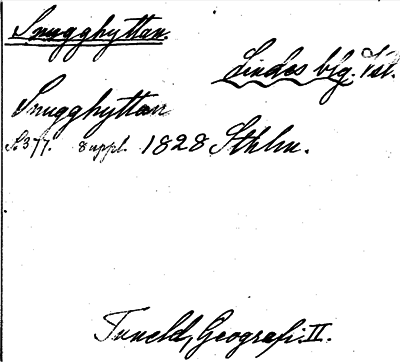 Snugghyttan
Lindes blg. Vstl.
Snugghyttan
S. 377. 8 uppl. 1828 Sthlm.
Tuneld, Geografi. II.